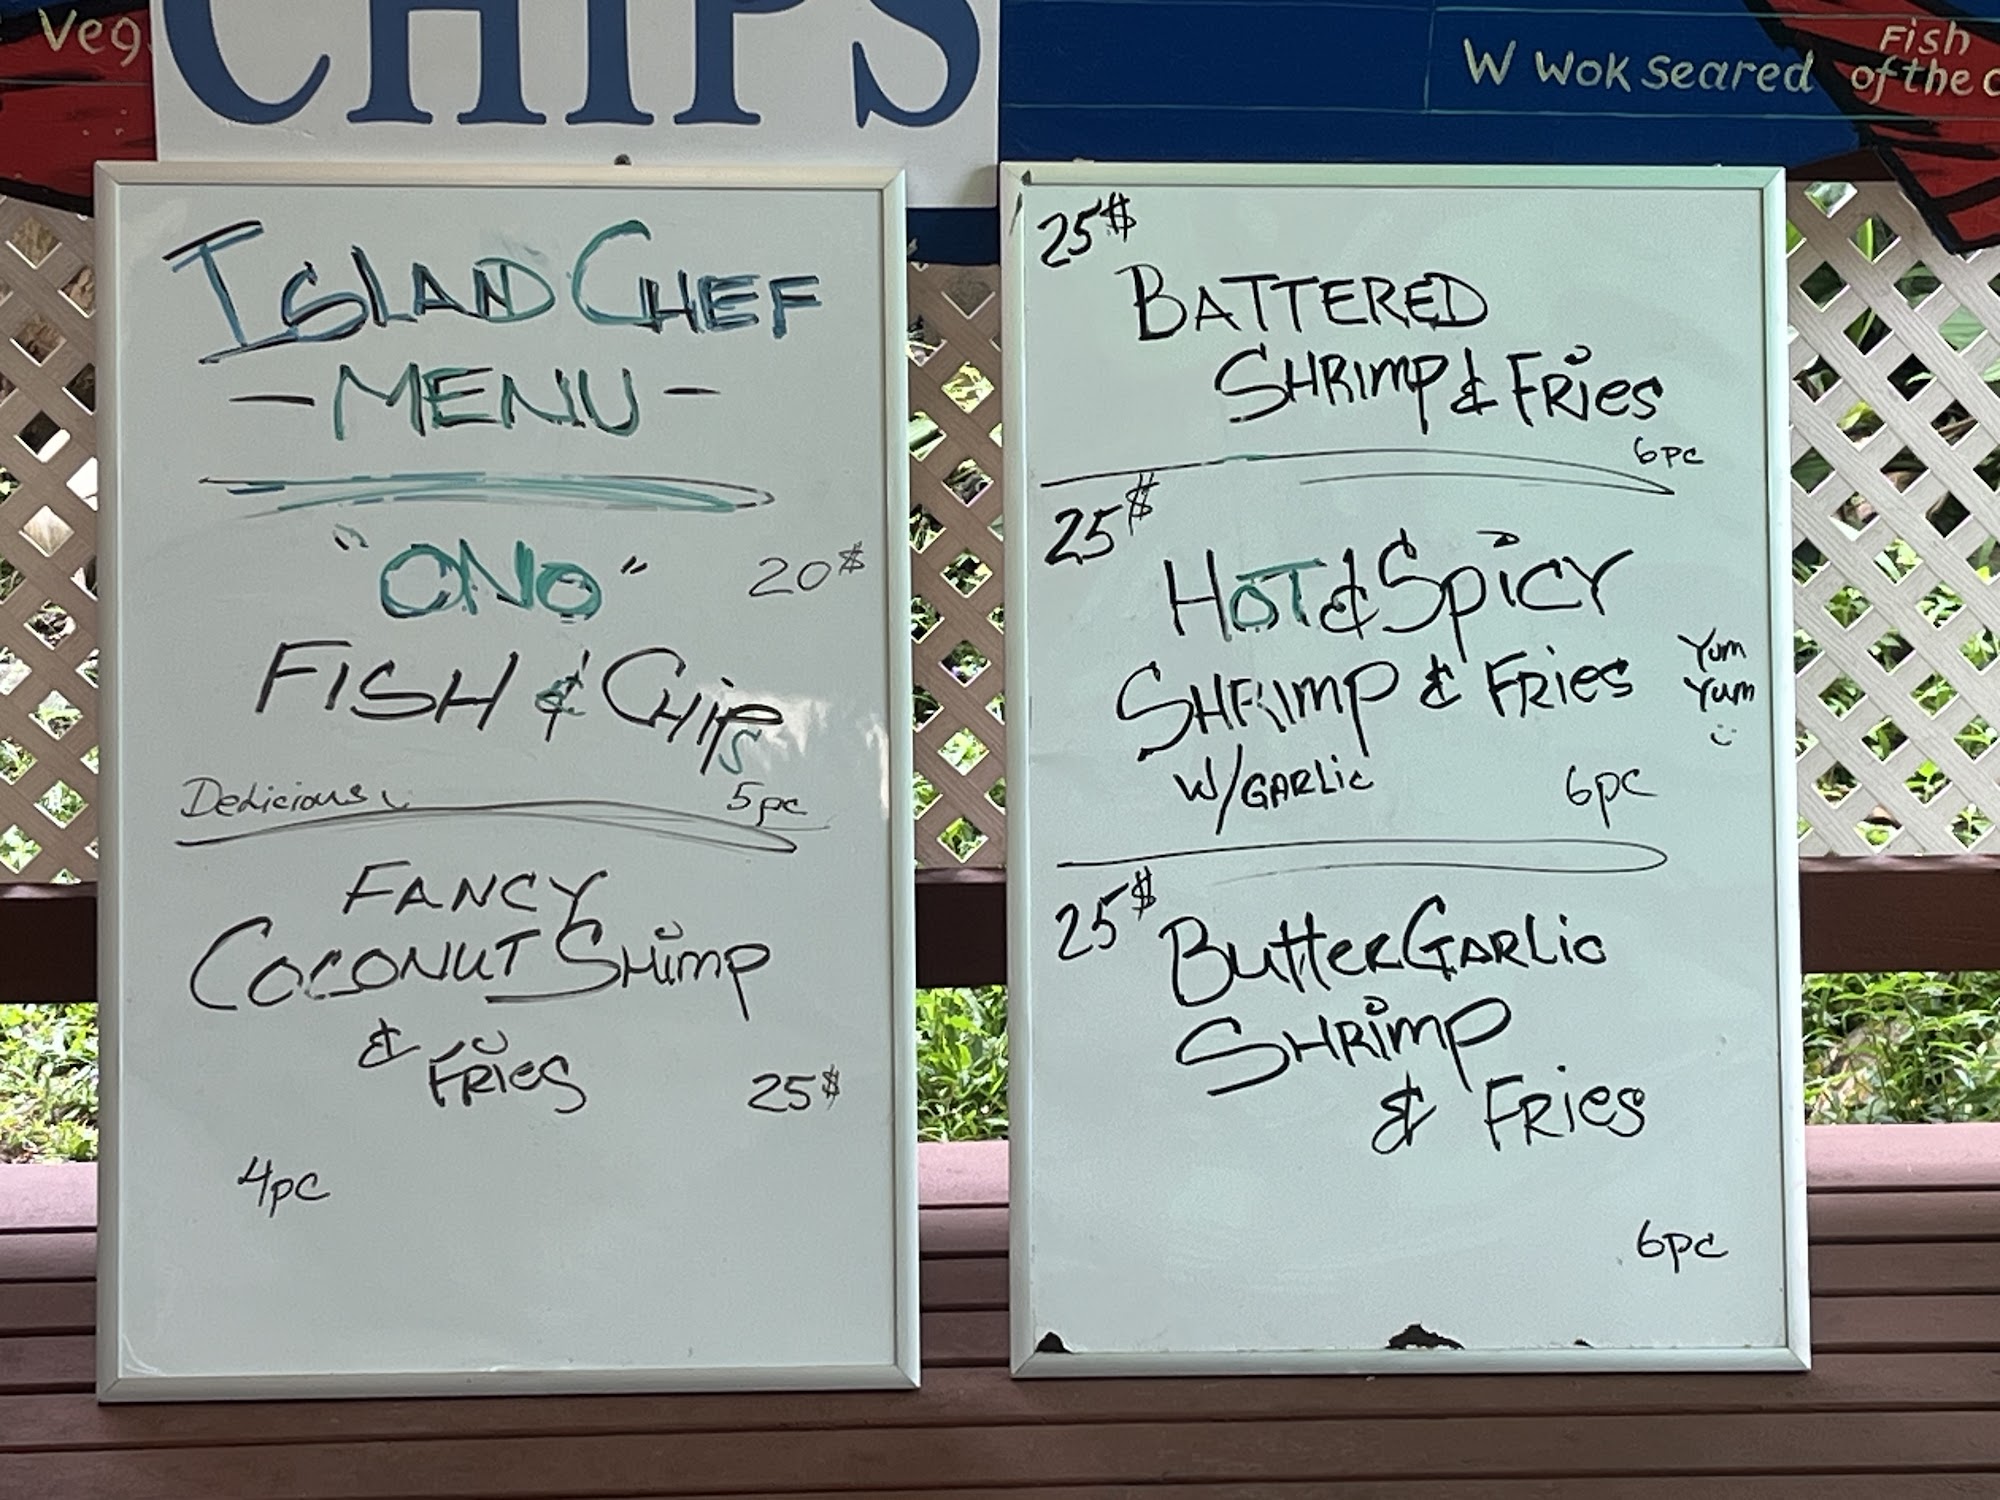 Veg.
CHIPS
W Wok Seared
Fish
of the
ISLAND CHEF
- MENU -
"ONO"
20$
FISH & CHIPS
Dedicious
5pc
FANCY
COCONUT SHIMP
& FRIES
25$
4pc
25$
BATTERED
SHRIMP & FRIES
6pc
25$
HOT & SPICY
SHRIMP & FRIES
Yum
Yum
W/GARLIC
6pc
25$
BUTTER GARLIC
SHRIMP
& FRIES
6pc